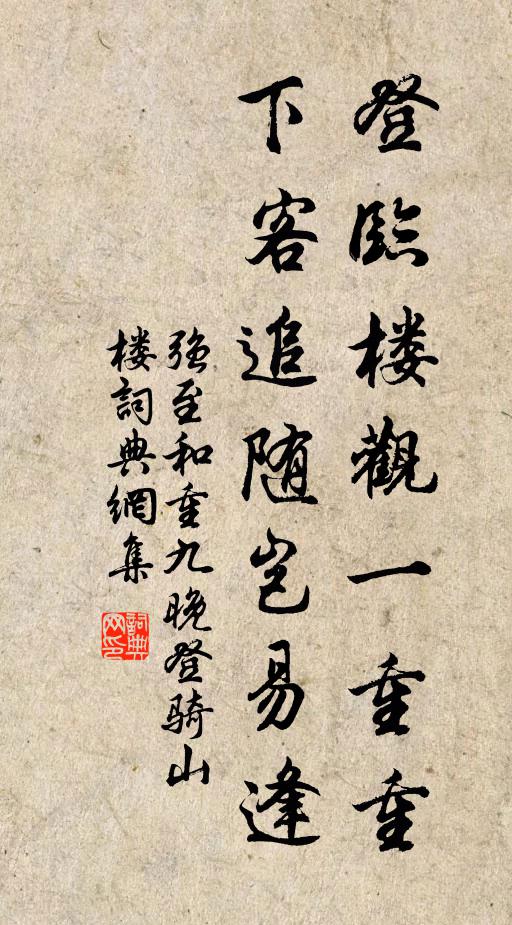 登臨楼觀一重重
下客追随岂易逢
强至和重九晚登骑山
楼詞典網集
詞典网印